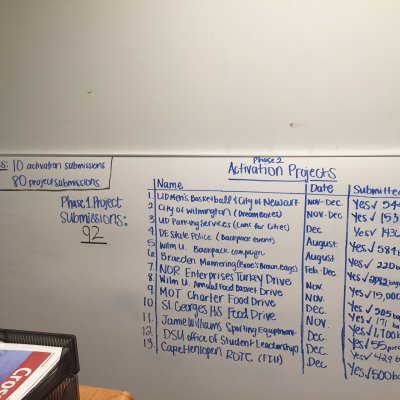 s: 10 activation submissions
80 project submissions
Phase 1 Project
Submissions:
92
Phase 2
Activation Projects
Name Date Submitted
1 UD Men's Basketball & City of Newark Nov-Dec Yes✓ 544
2 City of Wilmington (Dream Boxes) Nov-Dec Yes✓ 153
3 UD Parking Services (Cans for Cities) Dec
4 DE State Police (Backpack event) August Yes✓ 584
5 Wilm U. Backpack campaign August
6 Braeden Mannering (Brae's Brown Bags) Feb-Dec
7 NDR Enterprises Turkey Drive Nov.
8 Wilm U. Annual Food Basket Drive Nov.
9 MOT Charter Food Drive Nov.
10 St. Georges HS Food Drive Dec.
11 Jamie Williams Sporting Equipment Nov.
12 DSU office of Student Leadership Dec.
13. Cape Henlopen ROTC (FIH) Dec Yes✓ 500
Cros